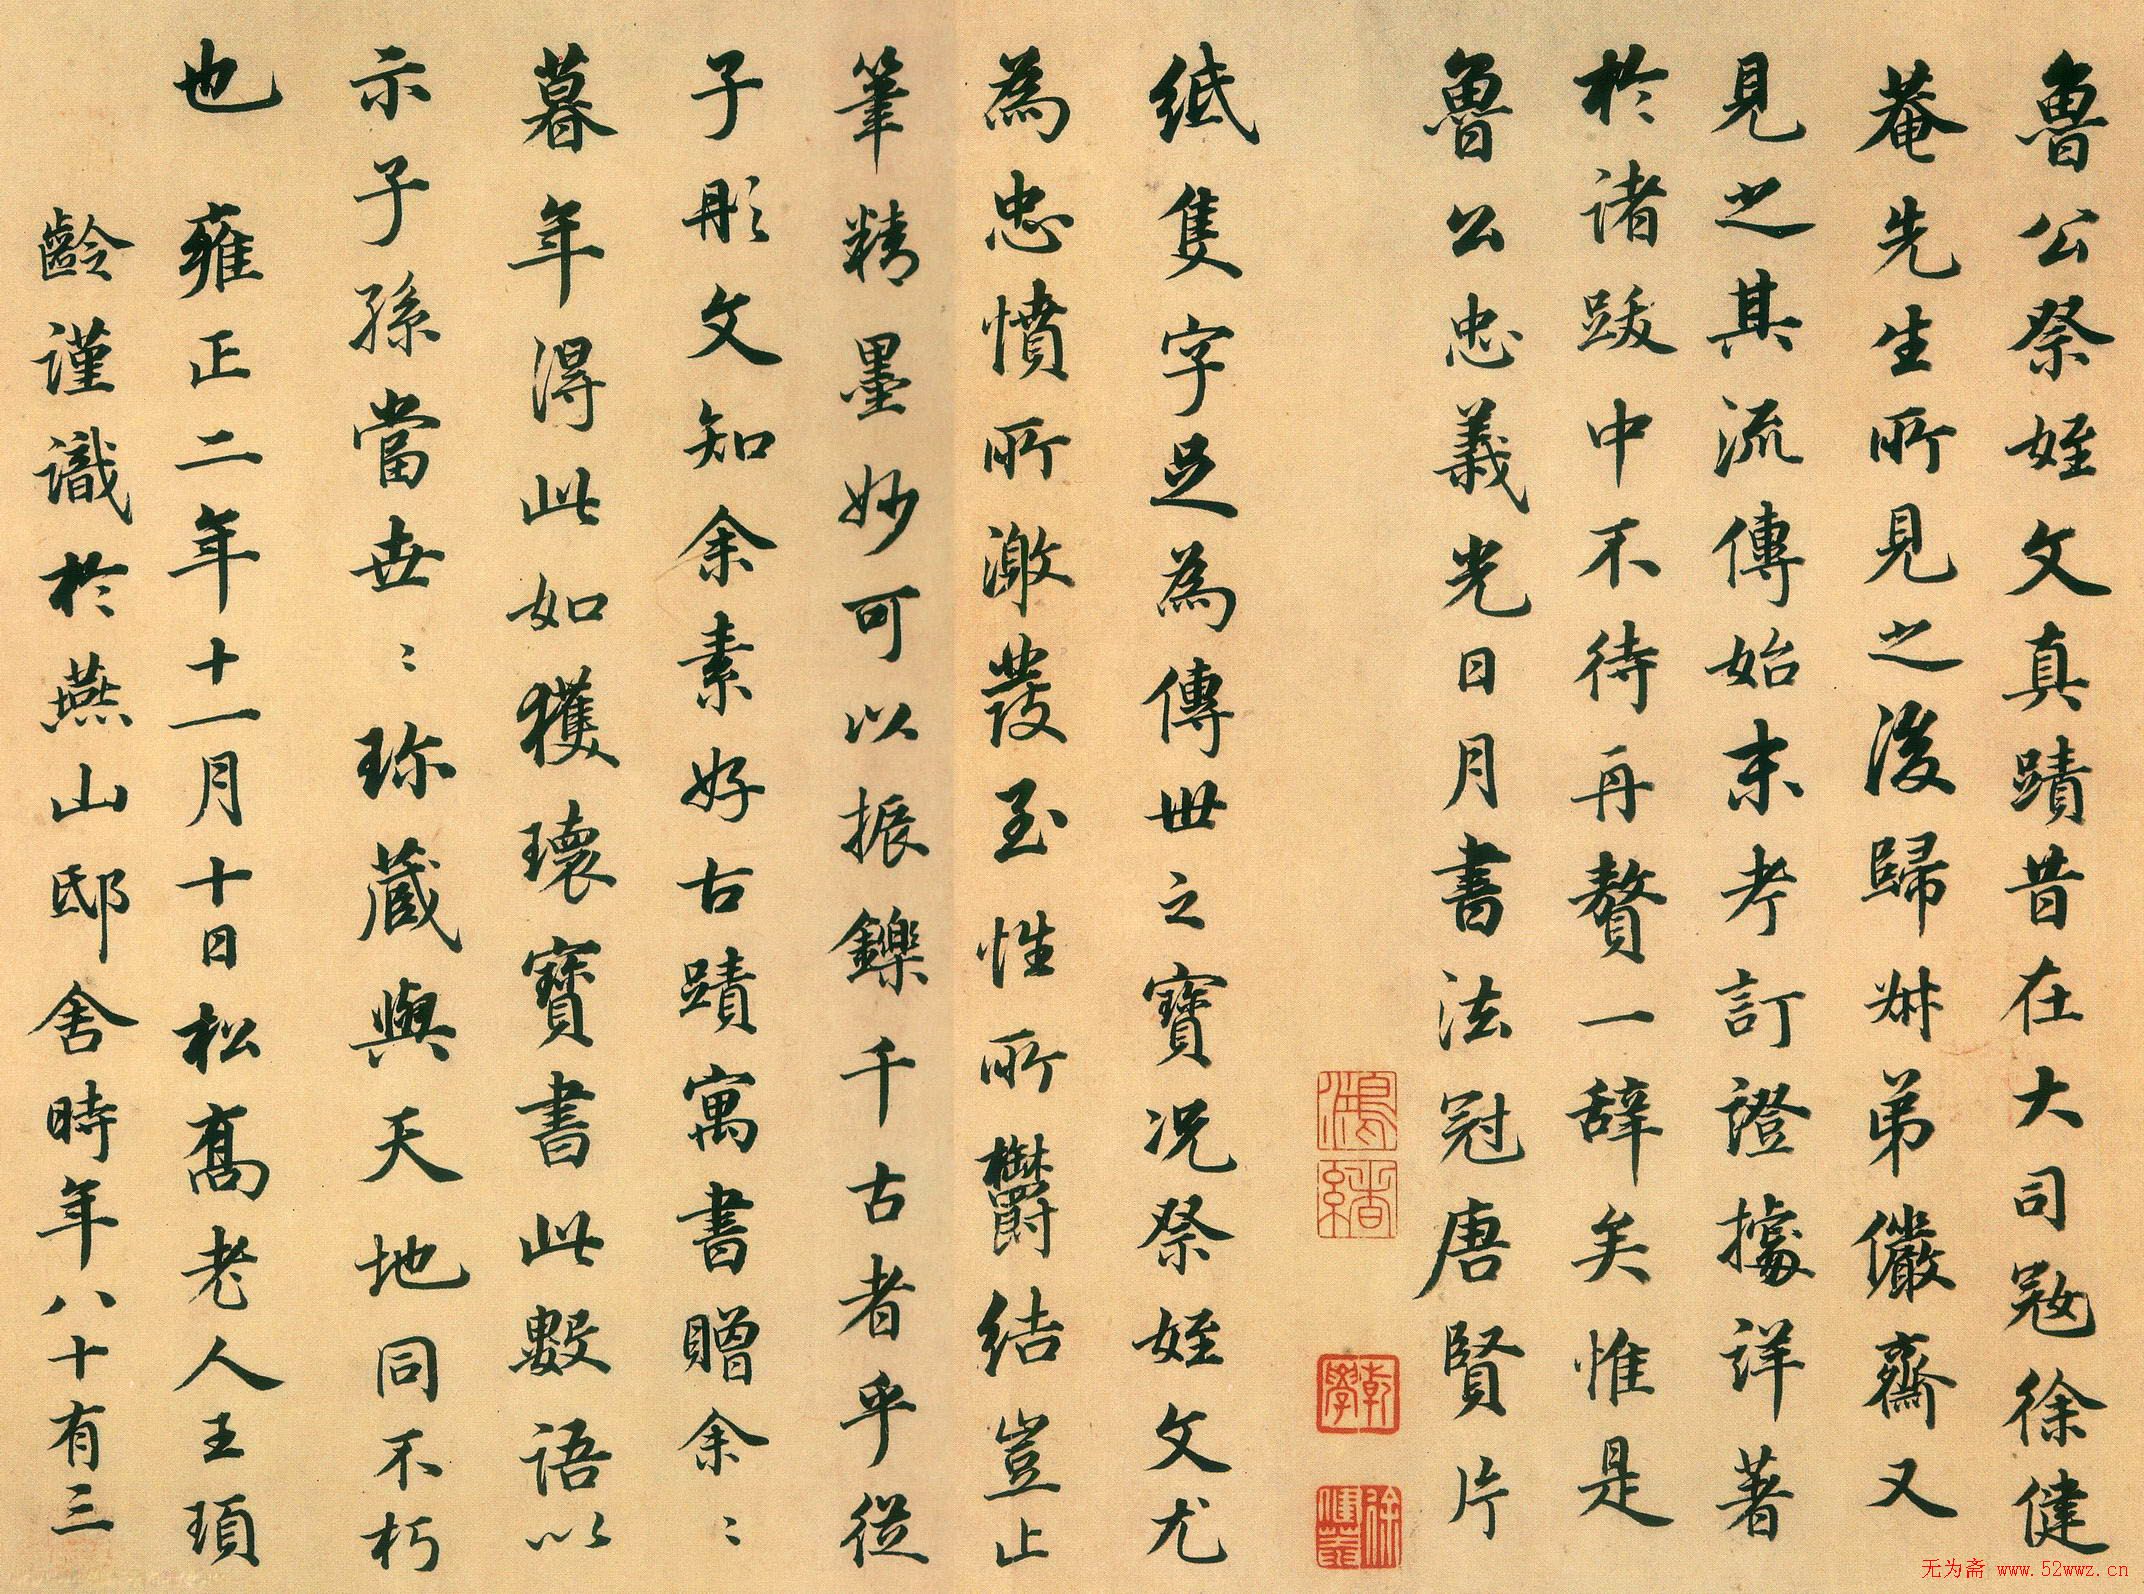 魯公祭姪文真蹟昔在大司寇徐健
菴先生所見之後歸淋弟儼齋又
見之其流傳始末考訂證據詳著
於諸跋中不待再贅一辞矣惟是
魯公忠義光日月書法冠唐賢片
紙隻字足為傳世之寶況祭姪文尤
為忠憤所激發至性所鬱結豈止
筆精墨妙可以振鑠千古者乎從
子彤文知余素好古蹟寓書贈余〻
暮年得此如獲瓌寶書此數語以
示子孫當世〻珎蔵與天地同不朽
也 雍正二年十一月十日松髙老人王頊
齡謹識於燕山邸舍時年八十有三
乾學
徐健菴
无为斋 www.52wwz.cn